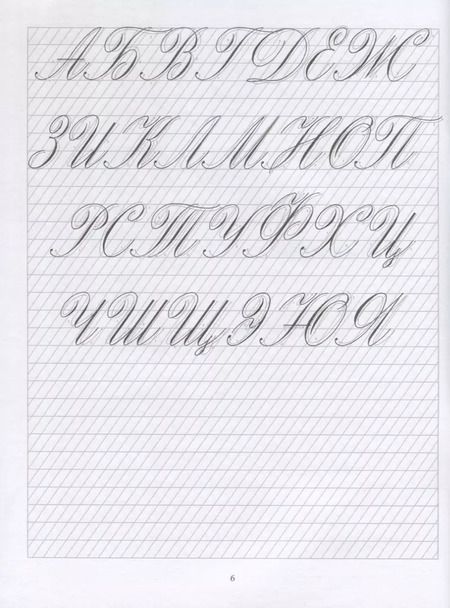 АБВГДЕЖ
ЗИКЛМНОП
РСТУФХЦ
ЧШЩЭЮЯ
6